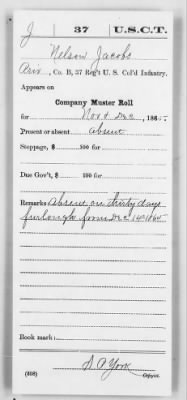 J 37 U.S.C.T.
Nelson Jacobs
Priv., Co. B, 37 Reg't U. S. Col'd Infantry.
Appears on
Company Muster Roll
for Nov & Dec, 1865
Present or absent Absent
Stoppage, $ 100 for
Due Gov't, $ 100 for
Remarks Absent on thirty days
furlough from Dec 14th 1865
Book mark:
(358)
Copyist.